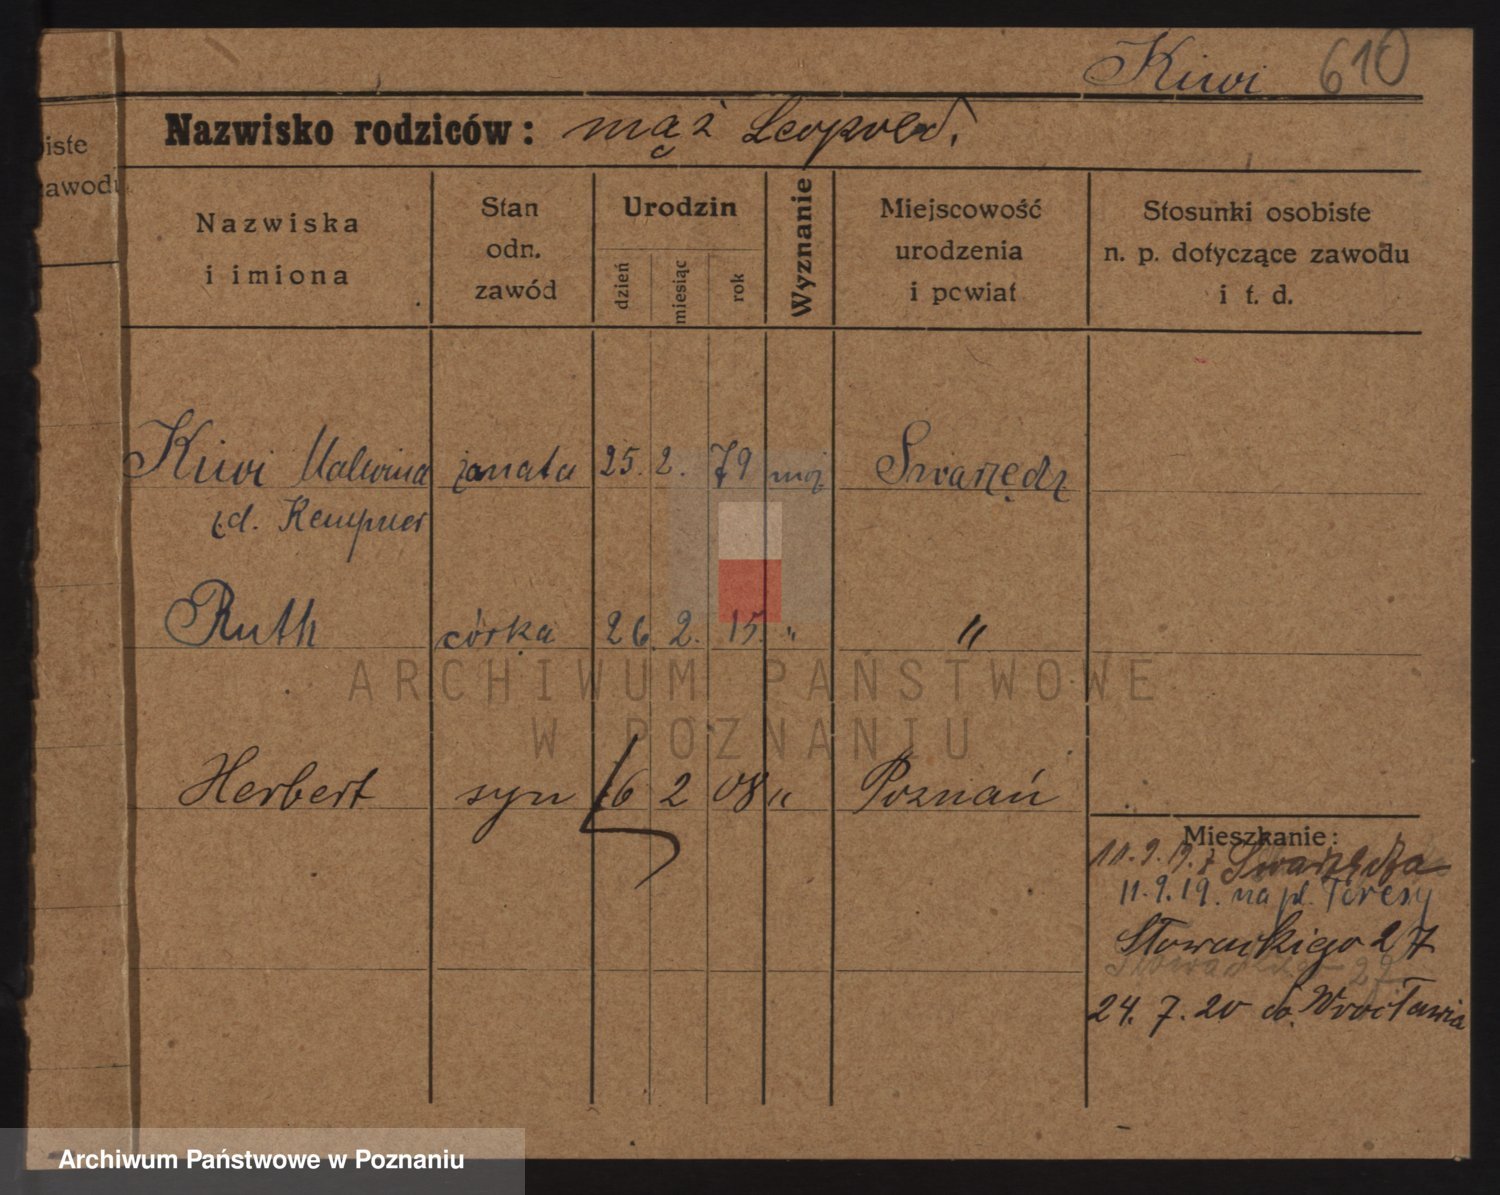 Kiwi 610
Nazwisko rodziców: mąż Leopold.
iste
zawodu
Nazwiska
i imiona
Stan
odn.
zawód
Urodzin
dzień
miesiąc
rok
Wyznanie
Miejscowość
urodzenia
i powiat
Stosunki osobiste
n. p. dotyczące zawodu
i t. d.
Kiwi Malwina żonata 25. 2. 79 moj Swarzędz
zd. Kempner
Ruth córka 26. 2. 15. " "
Herbert syn 16 2 08 " Poznań
Mieszkanie:
11.9.19. z Swarzędza
11.9.19. na pl. Teresy
Słowackiego 27
Słowackiego 27
24. 7. 20 do Wrocławia
ARCHIWUM PAŃSTWOWE
W POZNANIU
Archiwum Państwowe w Poznaniu